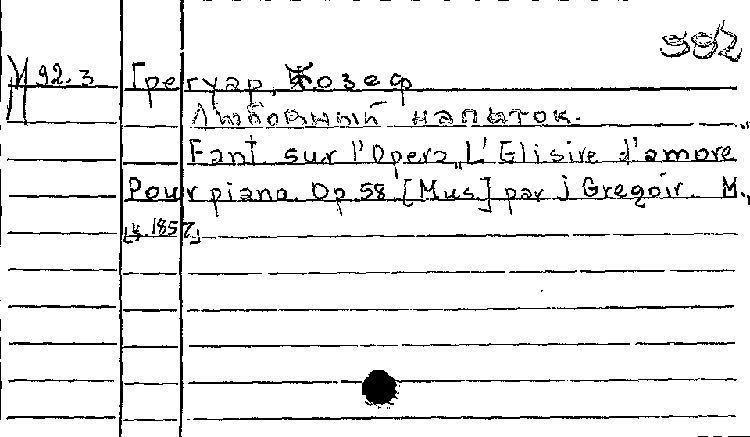 992
М 92.3 Грегуар, Жозеф
Любовный напиток.
Fant sur l'Opera „L'Elisire d'amore"
Pour piano. Op 58 [Mus] par J Gregoir. М.,
[ц. 1857]